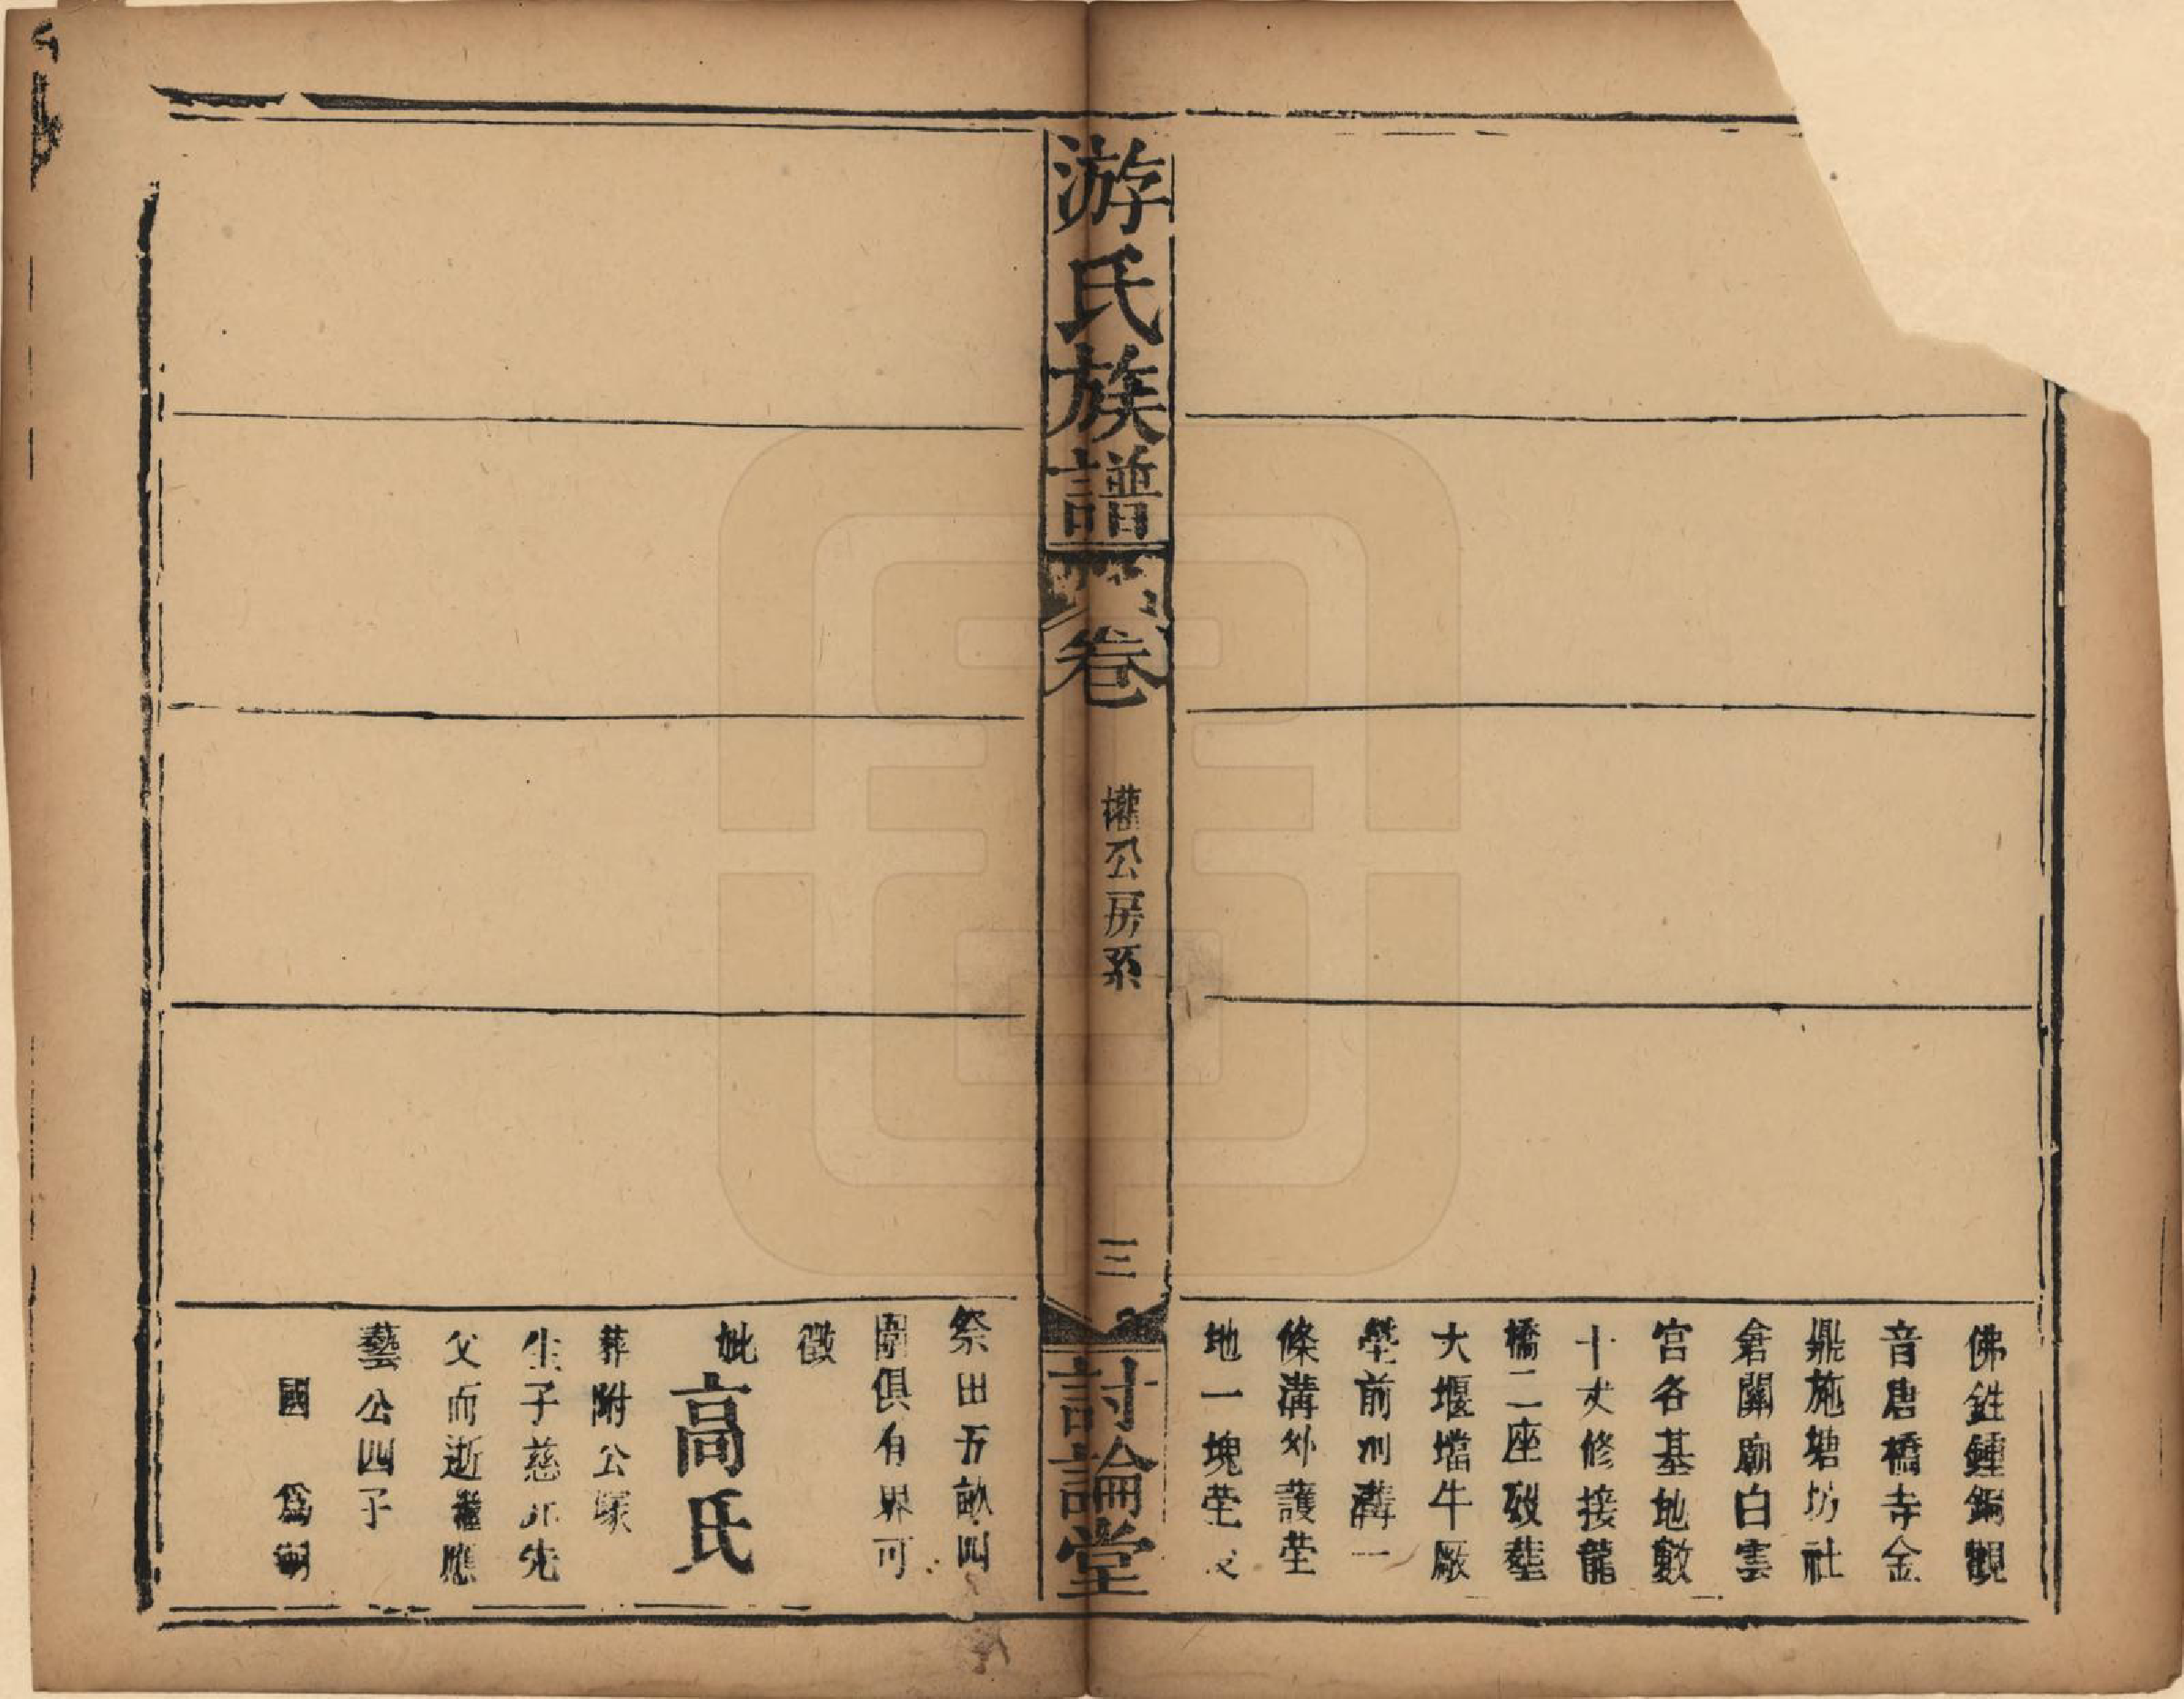 佛鉎鍾銅觀
音唐橋寺金
鼎施塘坊社
倉關廟白雲
宫各基地數
十丈修接龍
橋二座砍塟
大堰壋牛厰
塋前圳溝一
條溝外護塋
地一塊塋
游氏族譜
卷
權公房系
三
討論堂
祭田五畝四
圍俱有界可
徵
妣高氏
葬附公塚
生子慈亦先
父而逝繼應
藝公四子
國爲嗣